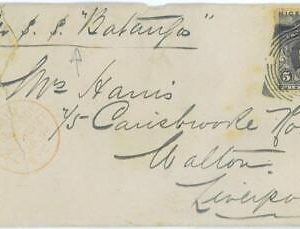 Per S.S. "Batanga"
Mrs Harris
75 Carisbrooke Ro
Walton
Liverpo
5